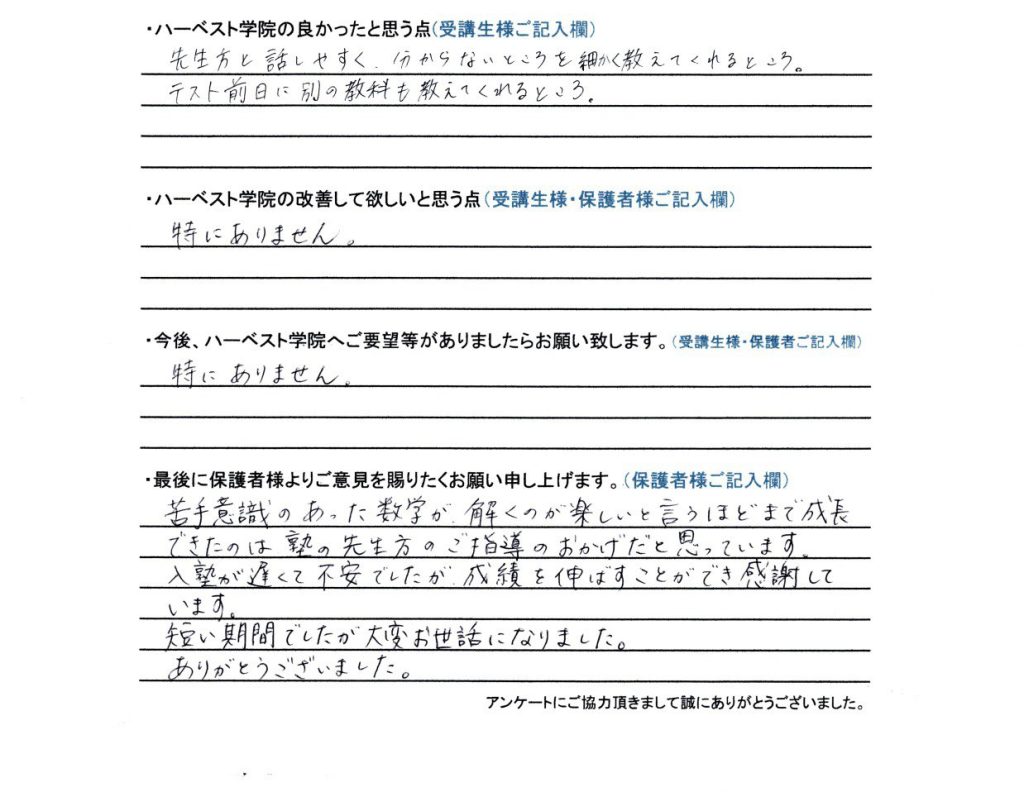 ・ハーベスト学院の良かったと思う点(受講生様ご記入欄)
先生方と話しやすく、分からないところを細かく教えてくれるところ。
テスト前日に別の教科も教えてくれるところ。
・ハーベスト学院の改善して欲しいと思う点(受講生様・保護者様ご記入欄)
特にありません。
・今後、ハーベスト学院へご要望等がありましたらお願い致します。(受講生様・保護者ご記入欄)
特にありません。
・最後に保護者様よりご意見を賜りたくお願い申し上げます。(保護者様ご記入欄)
苦手意識のあった数学が、解くのが楽しいと言うほどまで成長
できたのは塾の先生方のご指導のおかげだと思っています。
入塾が遅くて不安でしたが、成績を伸ばすことができ感謝して
います。
短い期間でしたが大変お世話になりました。
ありがとうございました。
アンケートにご協力頂きまして誠にありがとうございました。